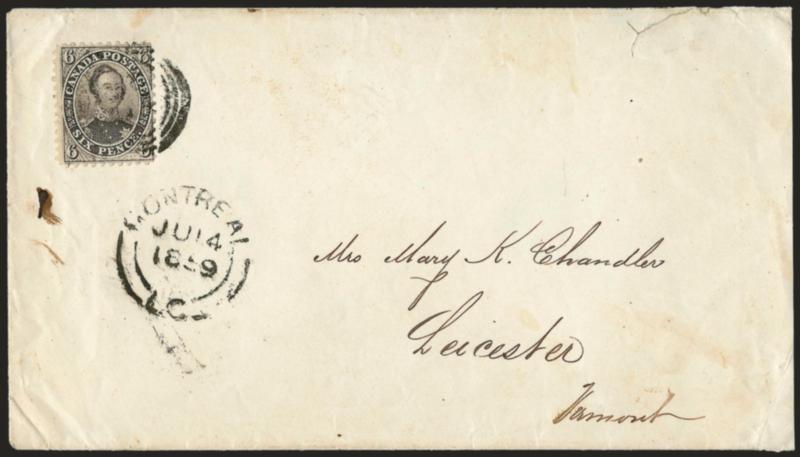 6 6
CANADA POSTAGE
SIX PENCE
6
MONTREAL
JU 14
1859
L.C.
Mrs Mary K. Chandler
Leicester
Vermont